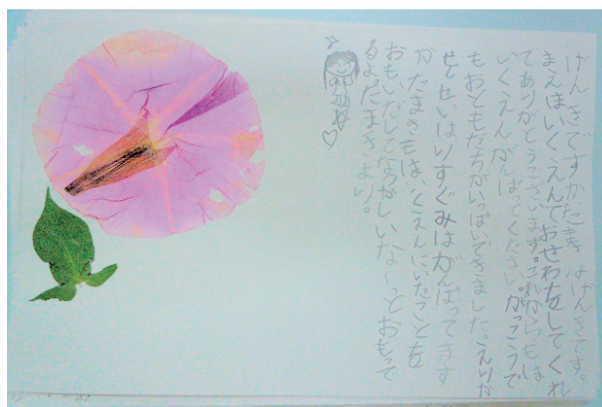 げんきですかたまきはげんきです。
まえほいくえんでおせわをしてくれ
てありがとうございます。これからもほ
いくえんがんばってください。がっこうで
もおともだちがいっぱいできました。えりか
せんせいはりすぐみはがんばってます
かたまきもほいくえんにいたことを
おもいだしてなつかしいな〜っとおもって
るよたまきより。